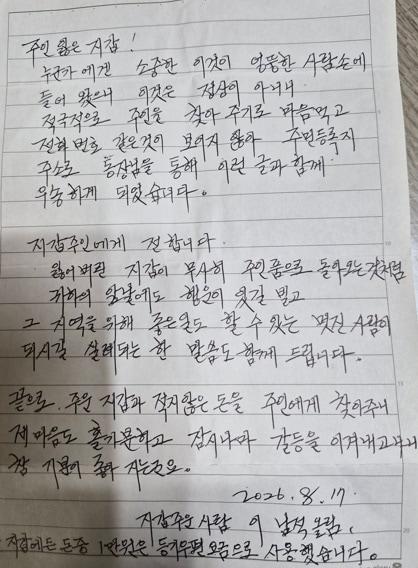 주인 잃은 지갑!
누군가에겐 소중한 이것이 엉뚱한 사람손에
들어 왔으니 이것은 정상이 아니니
적극적으로 주인을 찾아 주기로 마음먹고
전화번호 같은것이 보이지 않아 주민등록지
주소로 통장님을 통해 이런 글과 함께
우송하게 되었습니다.
지갑주인에게 전합니다.
잃어버린 지갑이 무사히 주인품으로 돌아오는것처럼
귀하의 앞날에도 행운이 있길 빌고
그 지역을 위해 좋은일도 할 수 있는 멋진 사람이
되시길 한 말씀도 함께 드립니다.
끝으로. 주운 지갑과 적지않은 돈을 주인에게 찾아주니
제마음도 홀가분하고 잠시나마 갈등을 이겨내고나니
참 기분이 좋아 지는군요.
2026. 8. 17.
지갑주운 사람 이 남석 올림.
지갑에든 돈중 1만원은 등기우편 요금으로 사용했습니다.